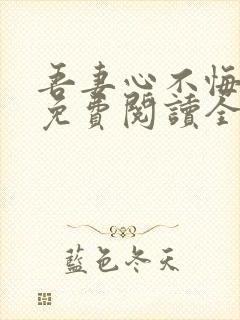 吾妻心不悔
免費閱讀全
藍色冬天